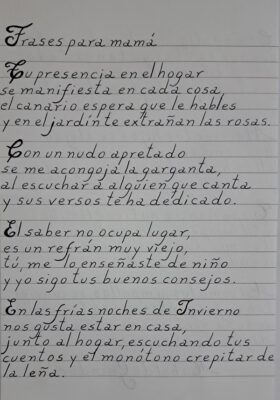 Frases para mamá
Tu presencia en el hogar
se manifiesta en cada cosa,
el canario espera que le hables
y en el jardín te extrañan las rosas.
Con un nudo apretado
se me acongoja la garganta,
al escuchar a alguien que canta
y sus versos te ha dedicado.
El saber no ocupa lugar,
es un refrán muy viejo,
tú, me lo enseñaste de niño
y yo sigo tus buenos consejos.
En las frías noches de Invierno
nos gusta estar en casa,
junto al hogar, escuchando tus
cuentos y el monótono crepitar de
la leña.